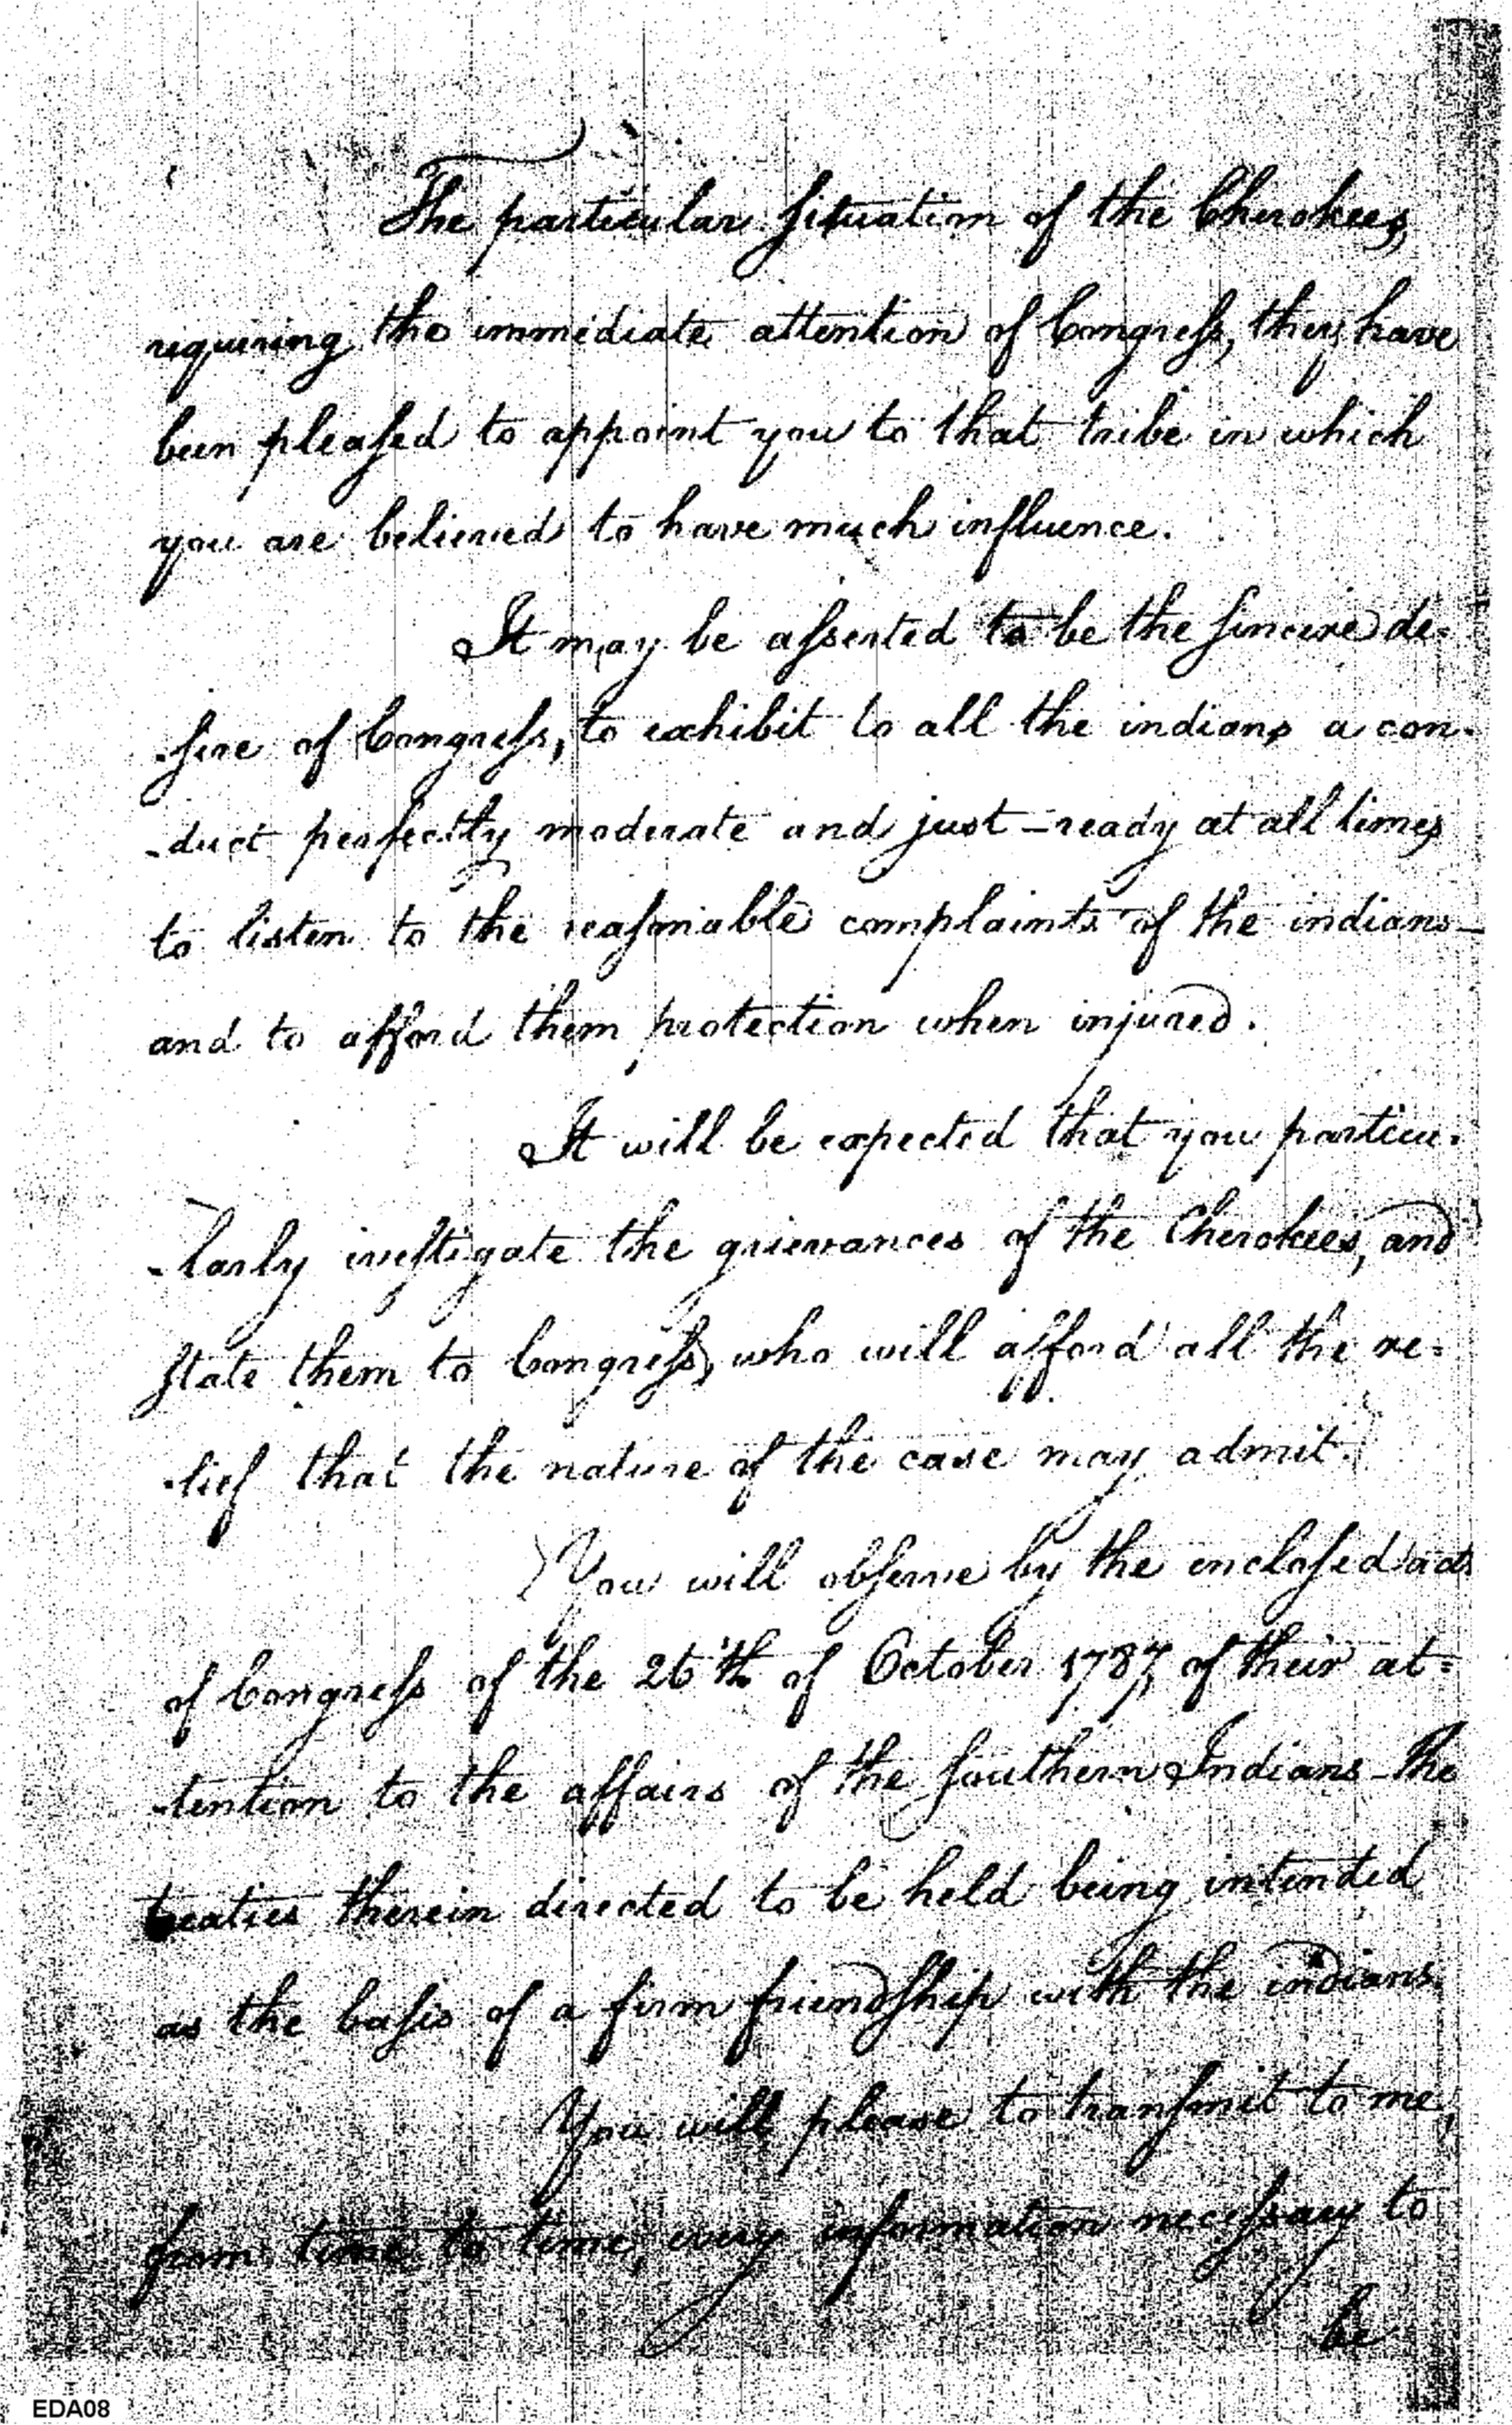 The particular situation of the Cherokees,
requiring the immediate attention of Congress, they have
been pleased to appoint you to that tribe in which
you are believed to have much influence.
It may be asserted to be the sincere de-
-sire of Congress, to exhibit to all the indians a con-
-duct perfectly moderate and just – ready at all times
to listen to the reasonable complaints of the indians –
and to afford them protection when injured.
It will be expected that you particu-
-larly investigate the grievances of the Cherokees, and
state them to Congress, who will afford all the re=
-lief that the nature of the case may admit.
You will observe by the enclosed acts
of Congress of the 26th of October 1787, of their at=
-tention to the affairs of the southern Indians – The
treaties therein directed to be held being intended
as the basis of a firm friendship with the indians.
You will please to transmit to me,
from time to time, every information necessary to
be
EDA08